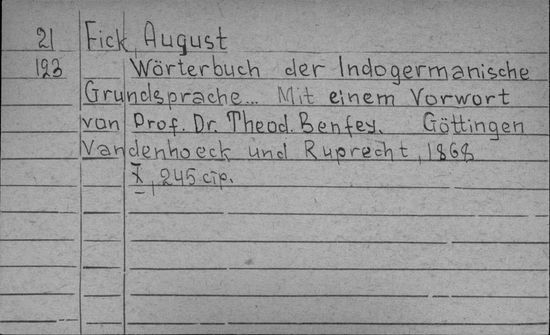 21 Fick, August
123 Wörterbuch der Indogermanische
Grundsprache... Mit einem Vorwort
von Prof. Dr. Theod. Benfey. Göttingen
Vandenhoeck und Ruprecht, 1868
X, 245 стр.